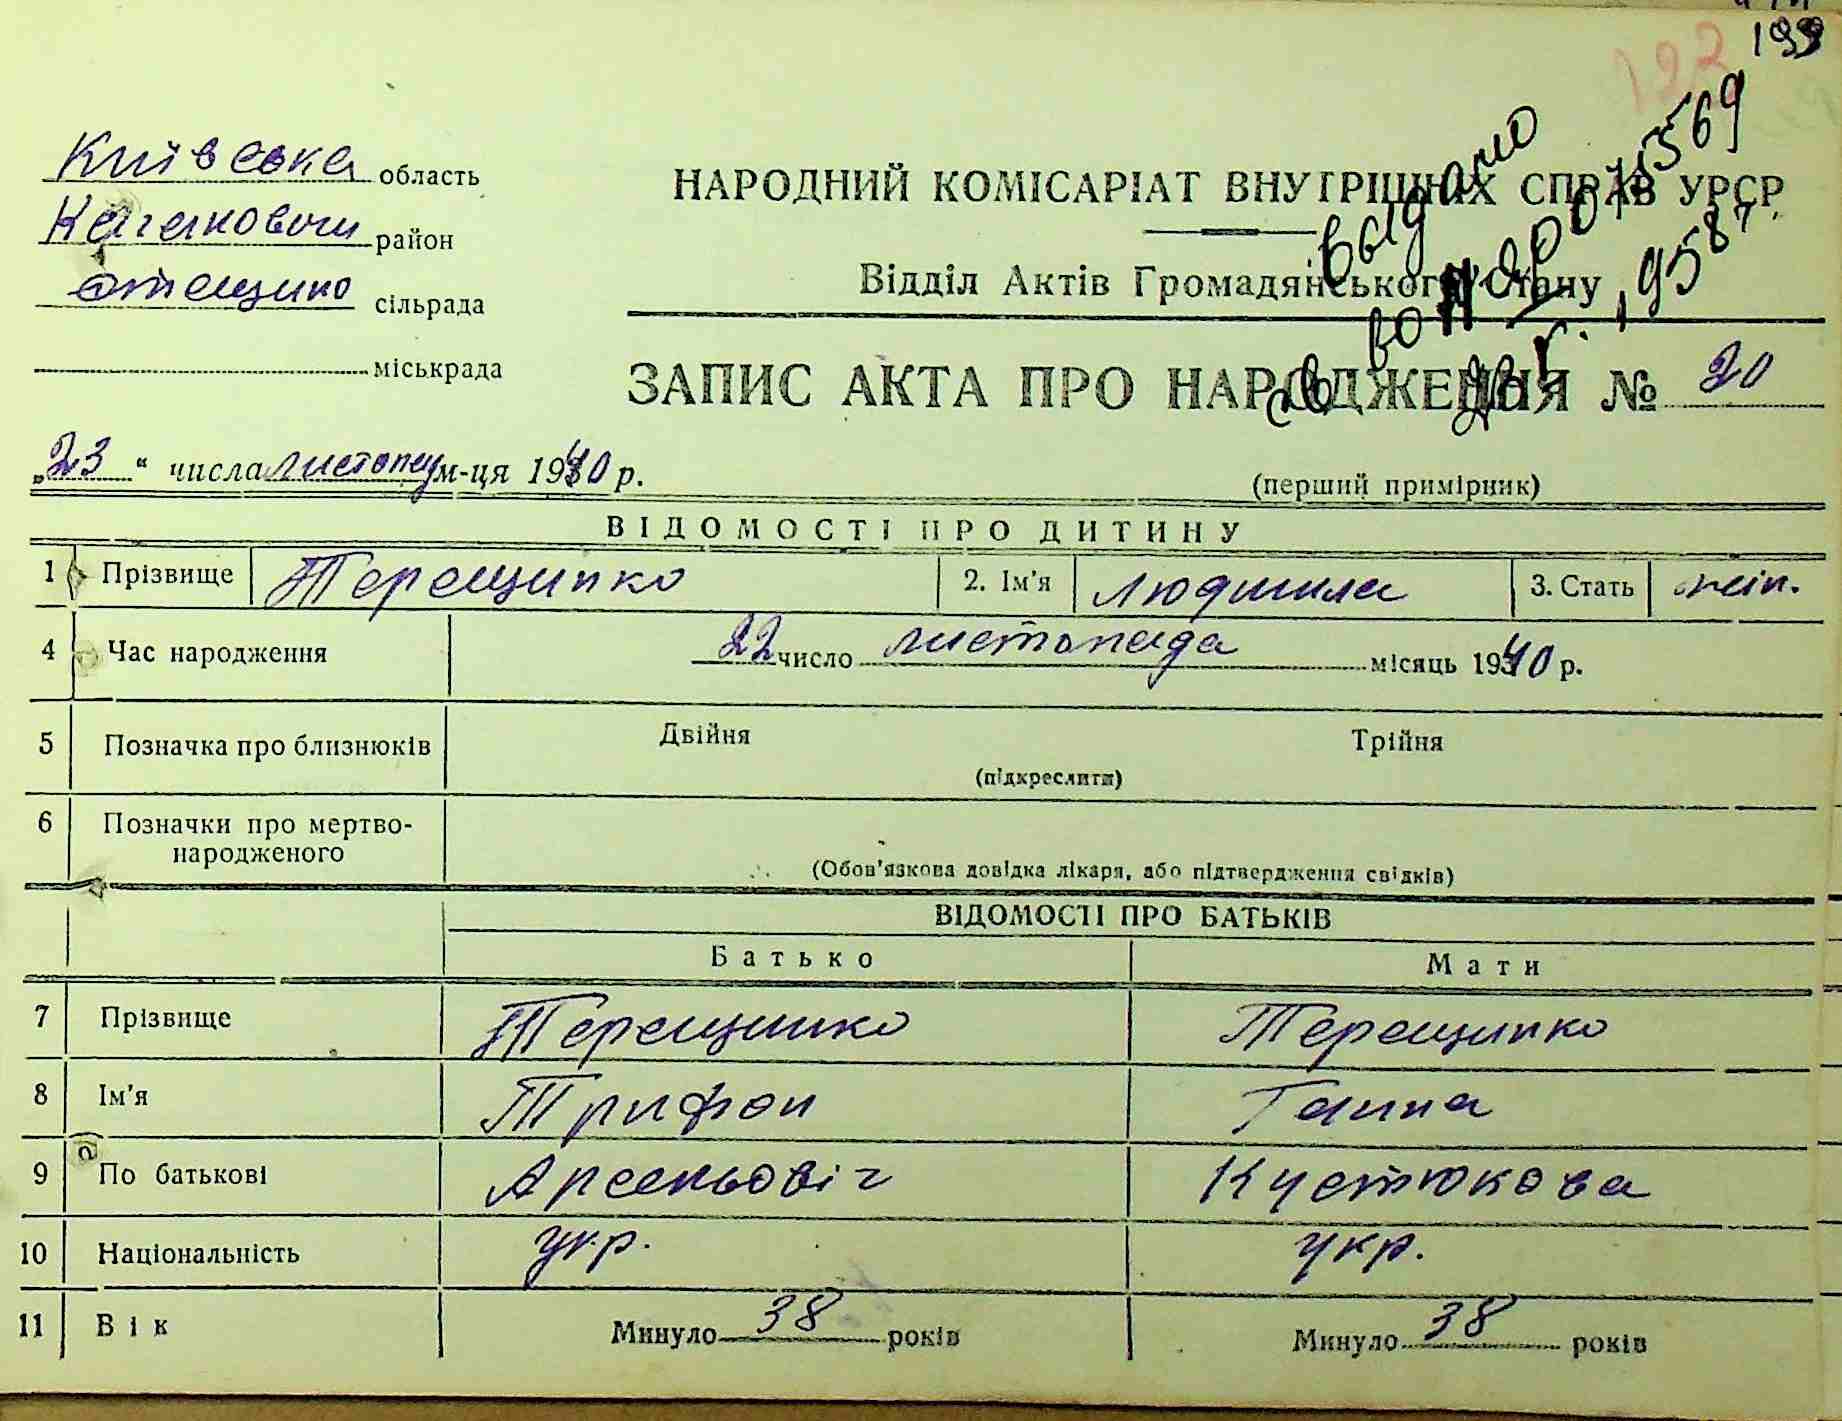 199
122
Київська область
Каганович район
сільрада
міськрада
НАРОДНИЙ КОМІСАРІАТ ВНУТРІШНІХ СПРАВ УРСР
Відділ Актів Громадянського Стану
ЗАПИС АКТА ПРО НАРОДЖЕННЯ № 20
выдано
„23“ числа листопад м-ця 1940 р.
(перший примірник)
ВІДОМОСТІ ПРО ДИТИНУ
1 Прізвище Терещинко 2. Ім'я Людмила 3. Стать жін.
4 Час народження 22 число листопада місяць 1940 р.
5 Позначка про близнюків Двійня Трійня
(підкреслити)
6 Позначки про мертво-
народженого
(Обов'язкова довідка лікаря, або підтвердження свідків)
ВІДОМОСТІ ПРО БАТЬКІВ
Батько Мати
7 Прізвище Терещинко Терещинко
8 Ім'я Трифон Ганна
9 По батькові Арсеньовіч Кустюкова
10 Національність укр. укр.
11 Вік Минуло 38 років Минуло 38 років